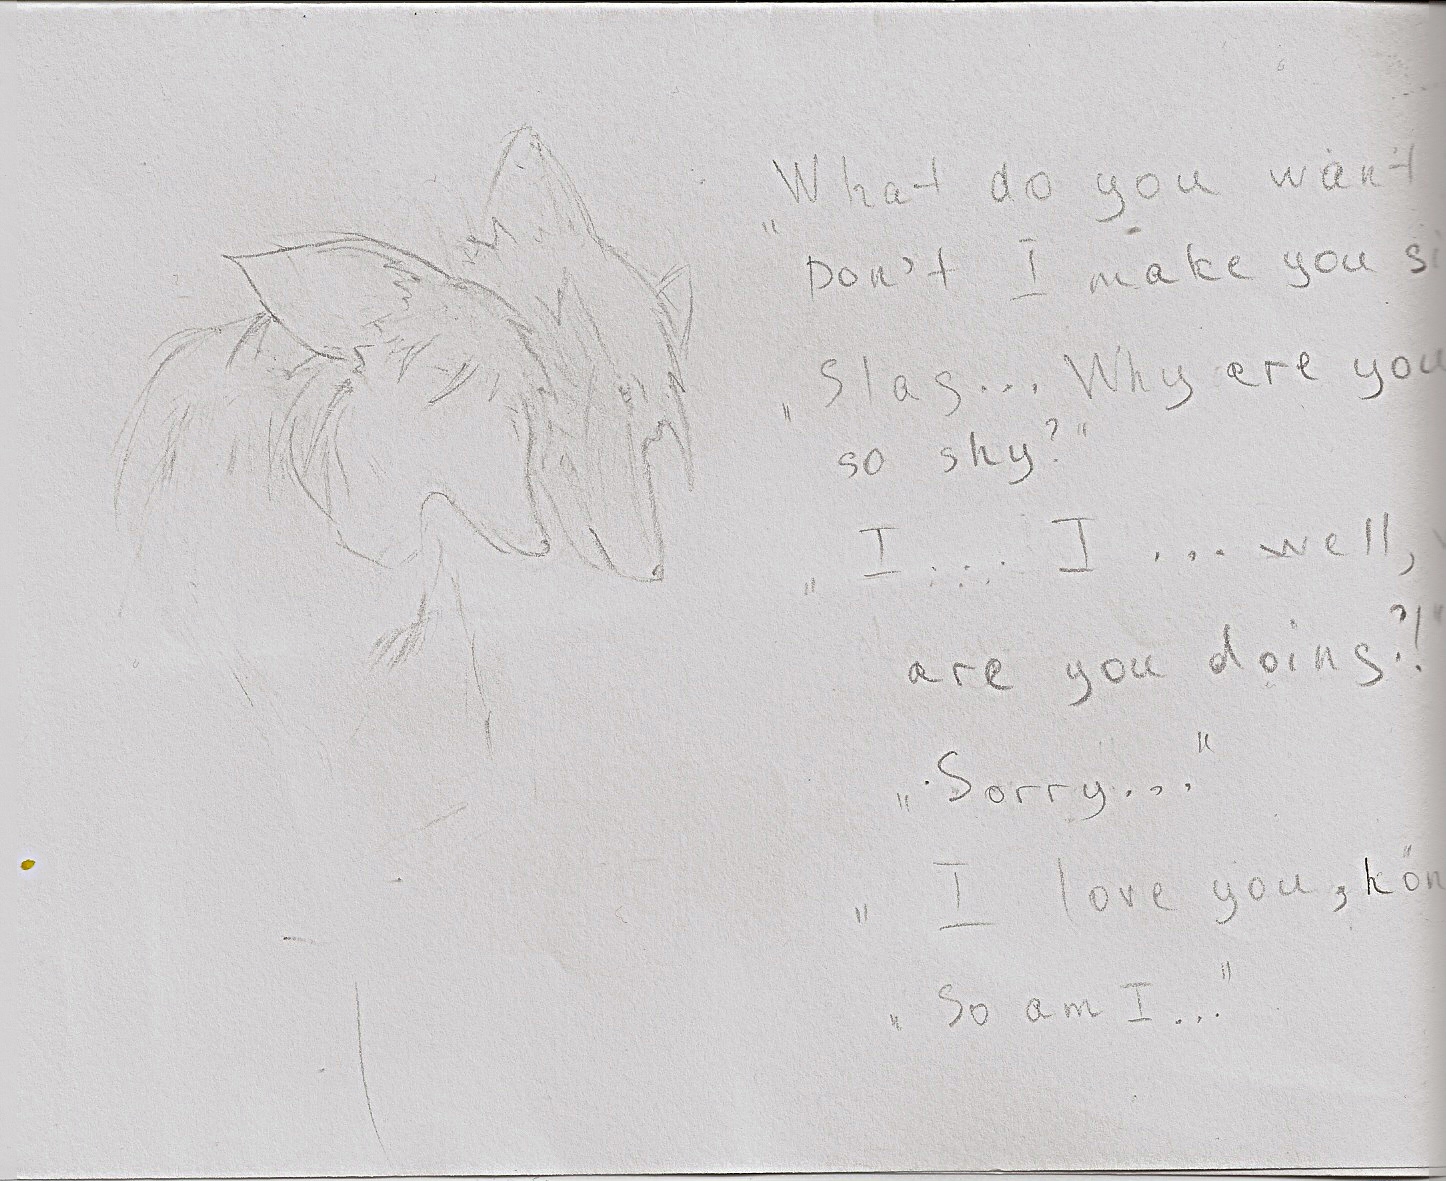 „What do you want
Don't I make you
„Slag... Why are you
so shy?"
„I.... I ... well,
are you doing?!"
„Sorry..."
„I love you,
„So am I..."